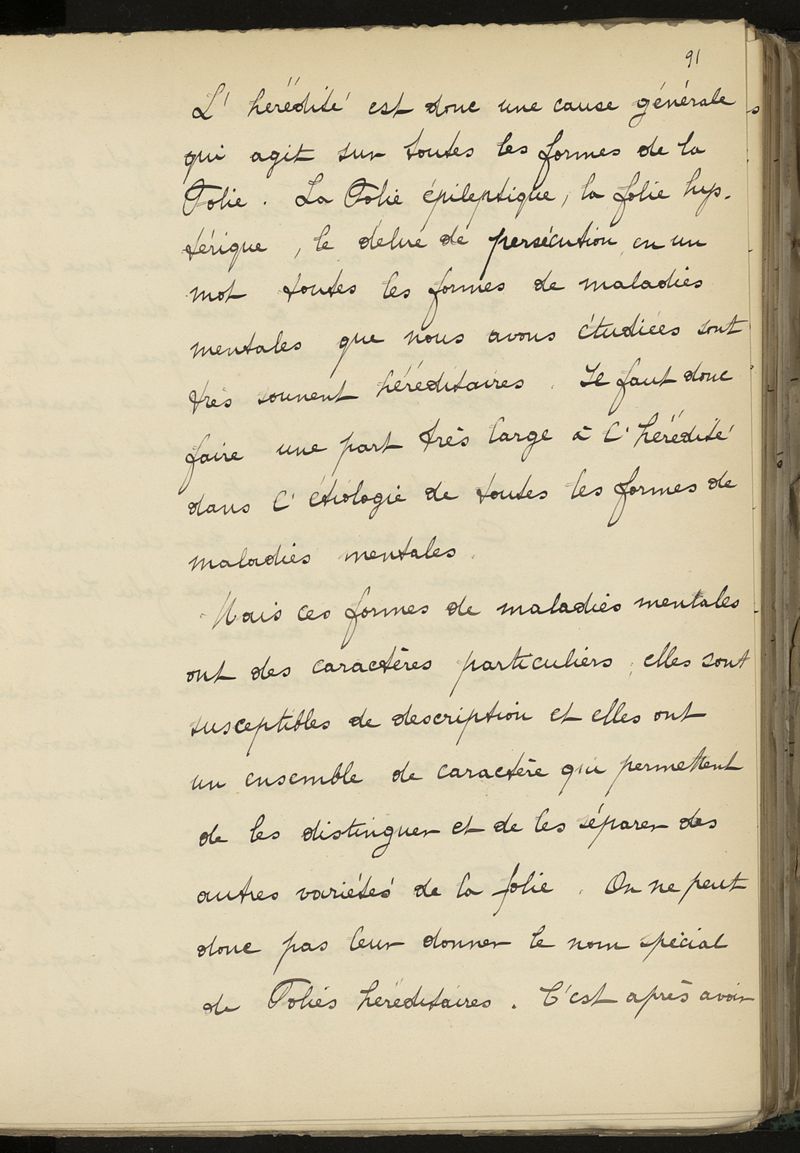 91
L'hérédité est donc une cause générale
qui agit sur toutes les formes de la
Folie. La Folie épileptique, la folie hys-
térique, le délire de persécution en un
mot toutes les formes de maladies
mentales que nous avons étudiées sont
très souvent héréditaires. Il faut donc
faire une part très large à l'hérédité
dans l'étiologie de toutes les formes de
maladies mentales.
Mais ces formes de maladies mentales
ont des caractères particuliers, elles sont
susceptibles de description et elles ont
un ensemble de caractère qui permettent
de les distinguer et de les séparer des
autres variétés de la folie. On ne peut
donc pas leur donner le nom spécial
de Folies héréditaires. C'est après avoir